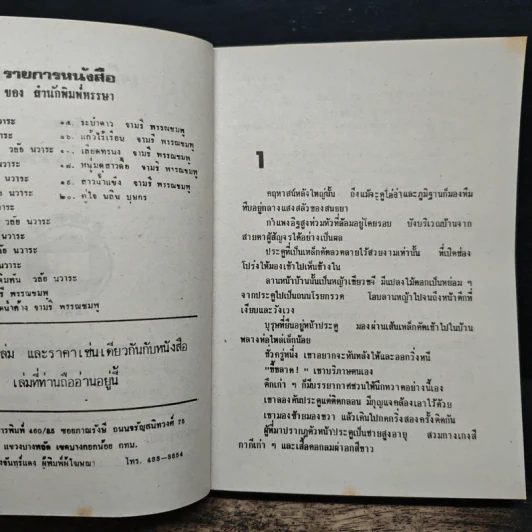 รายการหนังสือ
ของ สำนักพิมพ์หรรษา
วาระ ๑๕. ระบำดาว จามรี พรรณชมพู
าระ ๑๖. แก้วไร้เรือน จามรี พรรณชมพู
วลัย นวาระ ๑๗. เลียดทรนง จามรี พรรณชมพู
นวาระ ๑๘. หนุ่มดสาวดื้อ จามรี พรรณชมพู
นวาระ ๑๙. สาวน้ำแข็ง จามรี พรรณชมพู
วาระ ๒๐. คู่ใจ นลิน บุษกร
วลัย นวาระ
นวาระ
ลัย นวาระ
นวาระ
วลัย นวาระ
รี พรรณชมพู
จามรี พรรณชมพู
ล่ม และราคาเช่นเดียวกันกับหนังสือ
เล่มที่ท่านถืออ่านอยู่นี้
การพิมพ์ 460/25 ซอยภาณุรังษี ถนนจรัญสนิทวงศ์ 75
แขวงบางพลัด เขตบางกอกน้อย กทม.
จันทร์แดง ผู้พิมพ์ผู้โฆษณา โทร.
1
คฤหาสน์หลังใหญ่นั้น ถึงแม้จะดูโอ่อ่าและภูมิฐานก็มองทึม
ทึบอยู่กลางแสงสลัวของสนธยา
กำแพงอิฐสูงท่วมหัวที่ล้อมอยู่โดยรอบ บังบริเวณบ้านจาก
สายตาผู้สัญจรได้อย่างเป็นผล
ประตูที่เป็นเหล็กดัดลวดลายไร้สวยงามเท่านั้น ที่เปิดช่อง
โปร่งให้มองเข้าไปเห็นข้างใน
ลานหน้าบ้านนั้นเป็นหญ้าเขียวขจี มีแปลงไม้ดอกเป็นหย่อม ๆ
จากประตูไปเป็นถนนโรยกรวด โอบลานหญ้าไปจนถึงหน้าตึกที่
เงียบและวังเวง
บุรุษที่ยืนอยู่หน้าประตู มองผ่านเส้นเหล็กดัดเข้าไปในบ้าน
พลางห่อไหล่เล็กน้อย
ชั่วครู่หนึ่ง เขาอยากจะหันหลังให้และออกวิ่งหนี
"ขี้ขลาด !" เขาบริภาษตนเอง
ตึกเก่า ๆ ก็มีบรรยากาศชวนให้นึกหวาดอย่างนี้เอง
เขาลองดันประตูแต่ติดกลอน มีกุญแจคล้องเอาไว้ด้วย
เขามองซ้ายมองขวา แล้วเดินไปกดกริ่งสองครั้งติดกัน
ผู้ที่มาปรากฏตัวหน้าประตูเป็นชายสูงอายุ สวมกางเกงสี
กากีเก่า ๆ และเสื้อคอกลมผ้าอกสีขาว